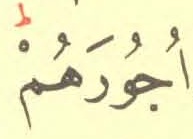 اُجُوْرَهُمْ ؕ